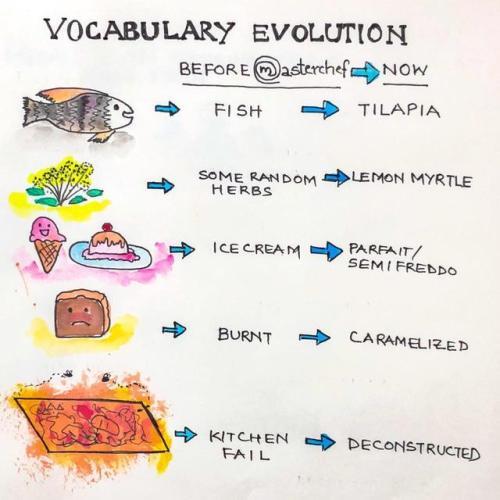 VOCABULARY EVOLUTION
BEFORE masterchef NOW
FISH TILAPIA
SOME RANDOM HERBS LEMON MYRTLE
ICECREAM PARFAIT/
SEMIFREDDO
BURNT CARAMELIZED
KITCHEN FAIL DECONSTRUCTED